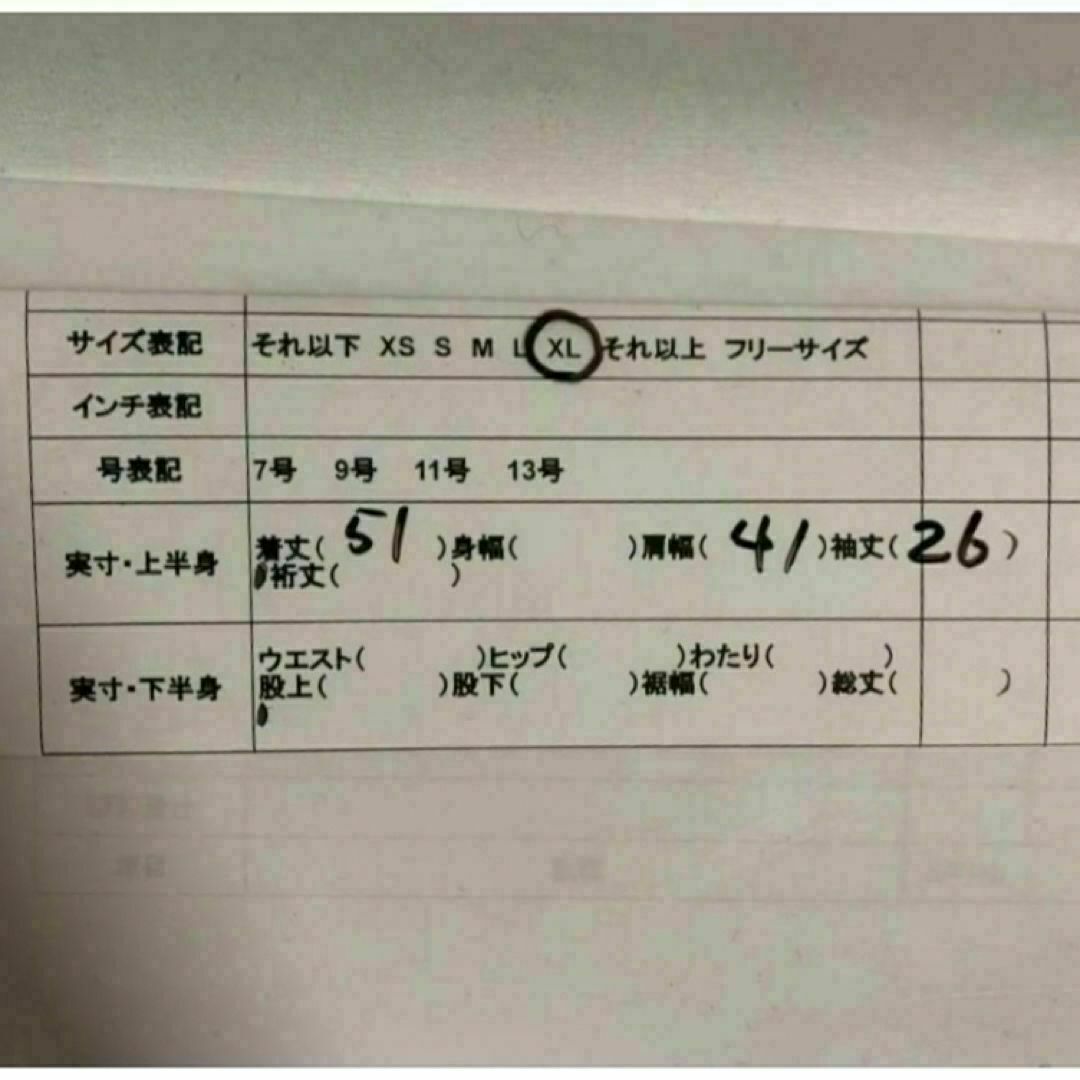 サイズ表記 それ以下 XS S M L XL それ以上 フリーサイズ
インチ表記
号表記 7号 9号 11号 13号
実寸・上半身 着丈( 51 )身幅( )肩幅( 41 )袖丈( 26 )
裄丈( )
実寸・下半身 ウエスト( )ヒップ( )わたり( )
股上( )股下( )裾幅( )総丈( )